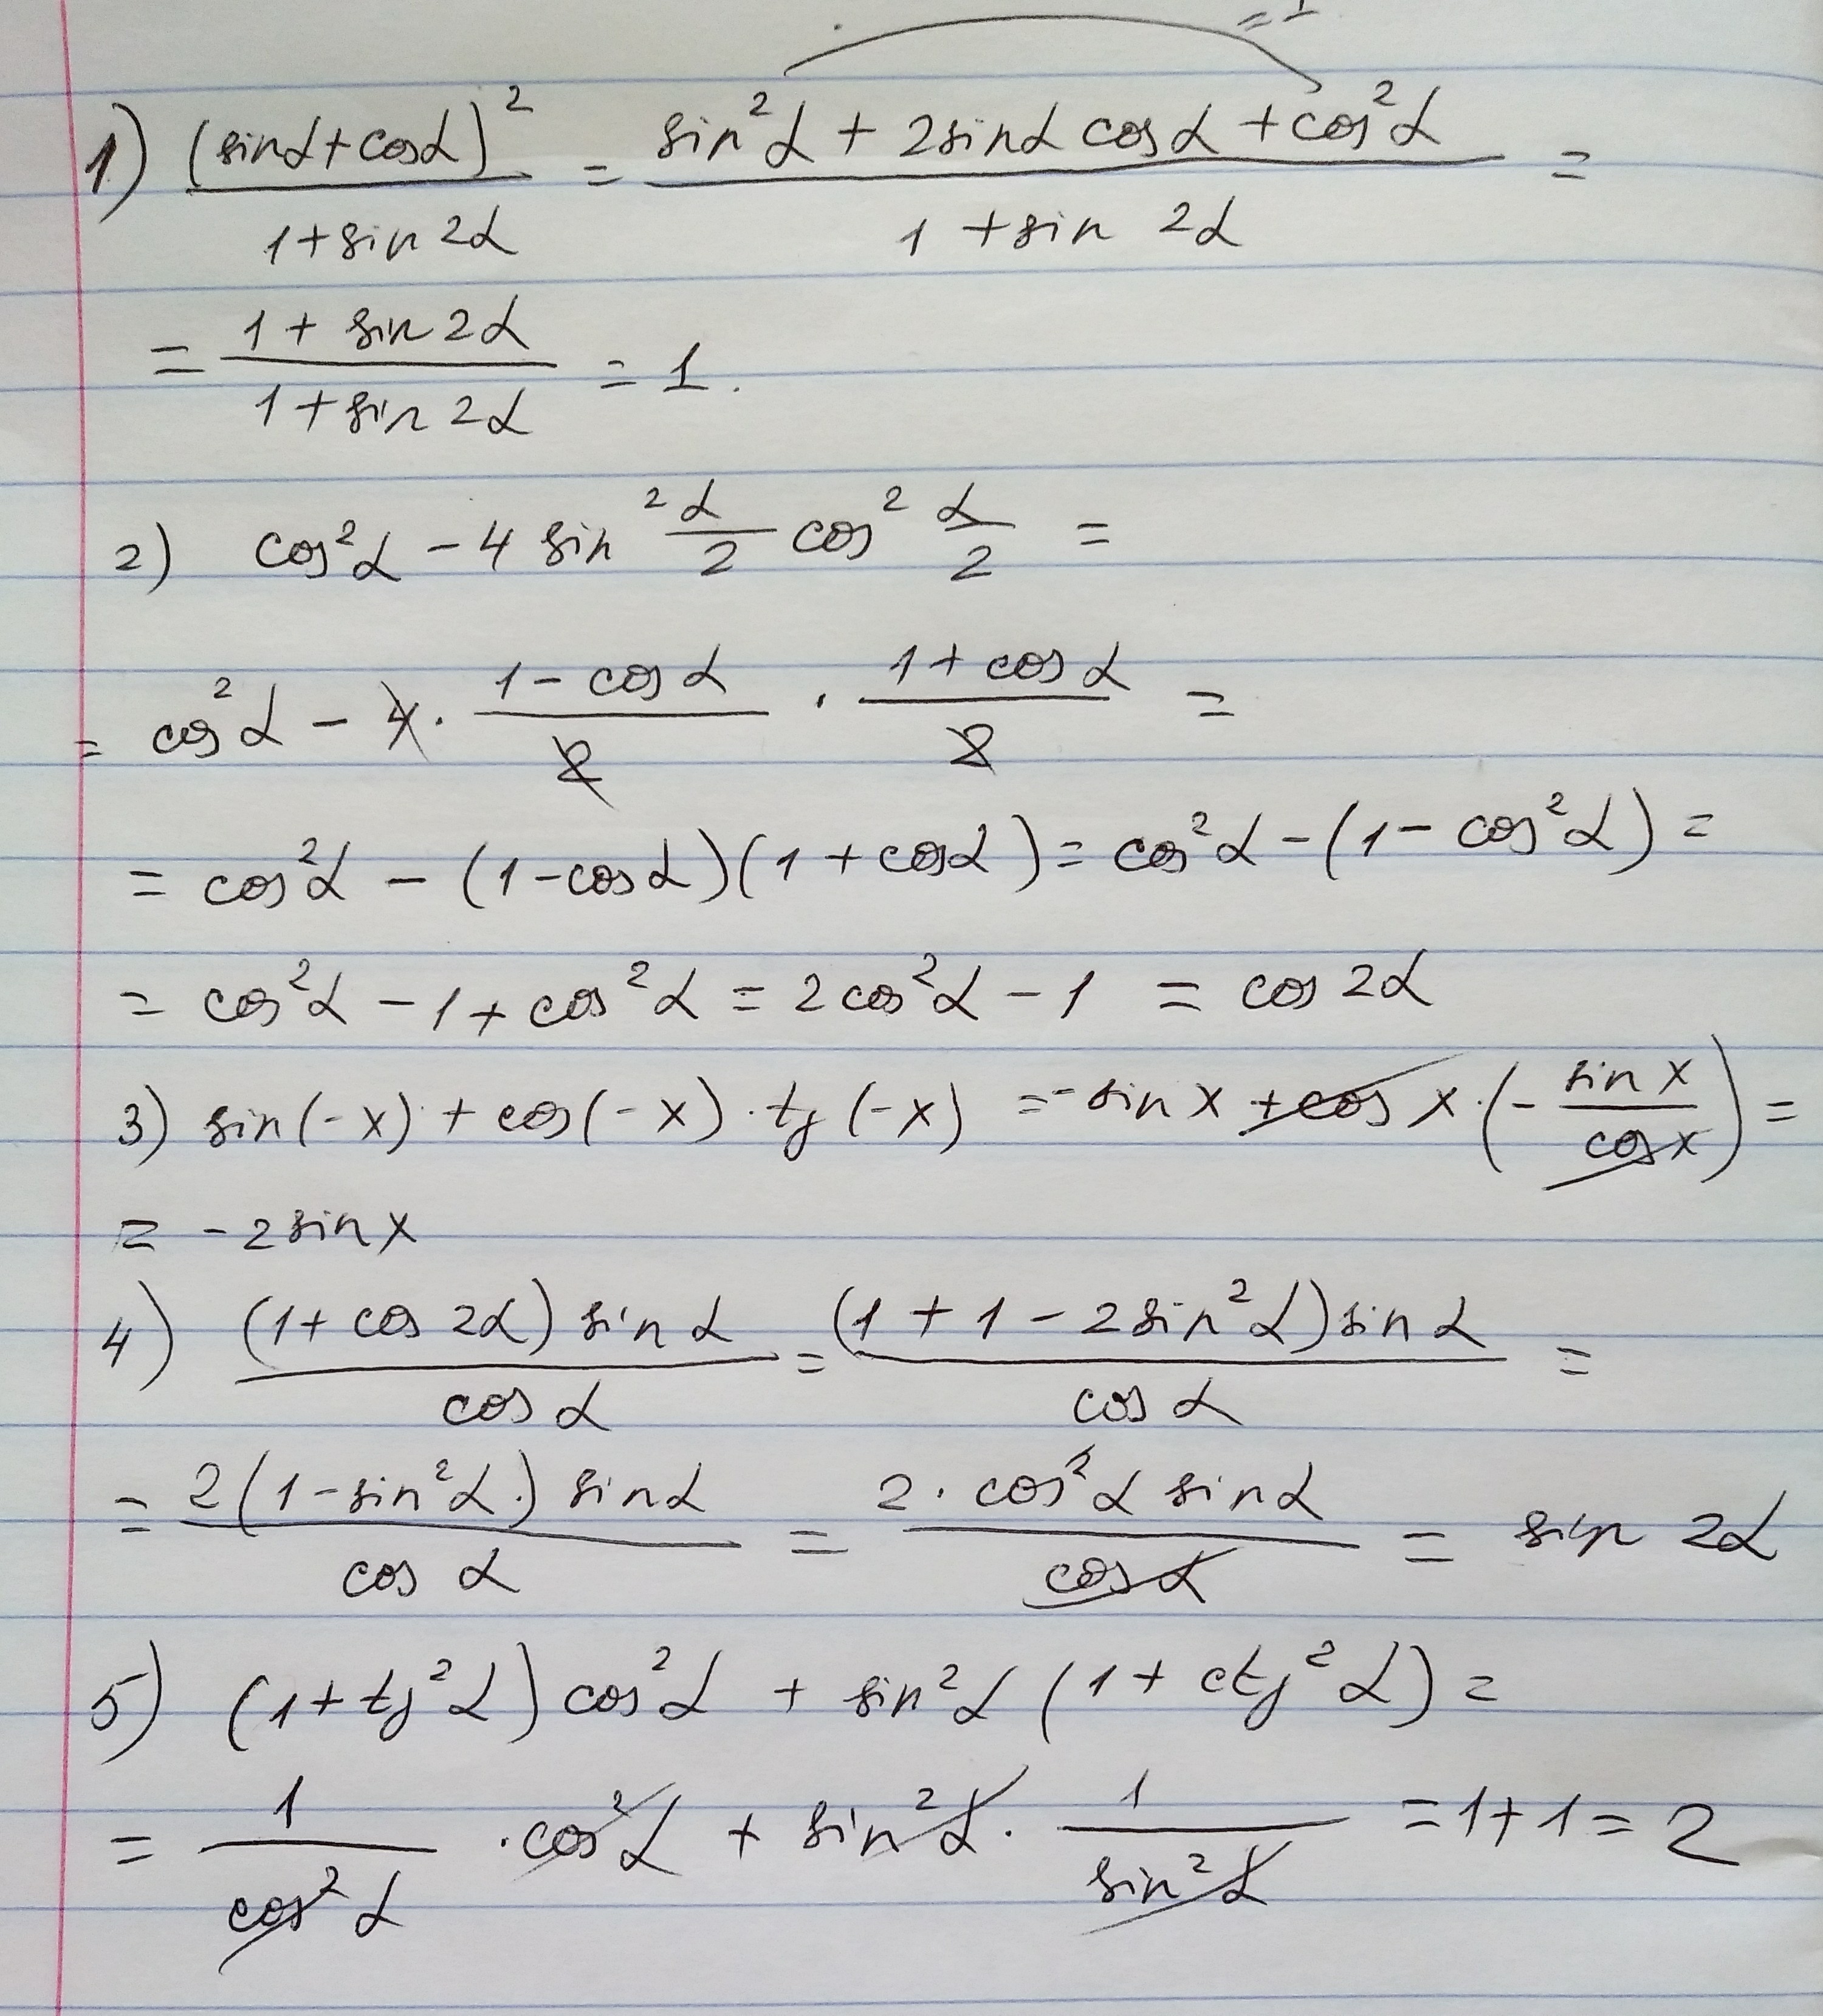 = 1
1) (sinα+cosα)² / 1+sin2α = sin²α + 2sinα cosα + cos²α / 1 + sin 2α =
= 1 + sin 2α / 1 + sin 2α = 1.
2) cos²α - 4 sin² α/2 cos² α/2 =
= cos²α - 4 · 1 - cosα / 2 · 1 + cosα / 2 =
= cos²α - (1-cosα)(1+cosα) = cos²α - (1 - cos²α) =
= cos²α - 1 + cos²α = 2cos²α - 1 = cos 2α
3) sin(-x) + cos(-x) · tg(-x) = -sin x + cos x · (- sin x / cos x) =
= -2 sin x
4) (1 + cos 2α) sin α / cos α = (1 + 1 - 2sin²α) sin α / cos α =
= 2(1-sin²α) sinα / cos α = 2 · cos²α sinα / cos α = sin 2α
5) (1+tg²α) cos²α + sin²α (1 + ctg²α) =
= 1 / cos²α · cos²α + sin²α · 1 / sin²α = 1+1 = 2